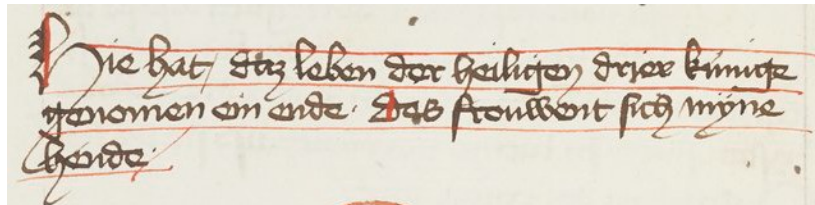 Hie hat / dz leben der heiligen drier künige
genomen ein ende · des frouwent sich myne
hende ·